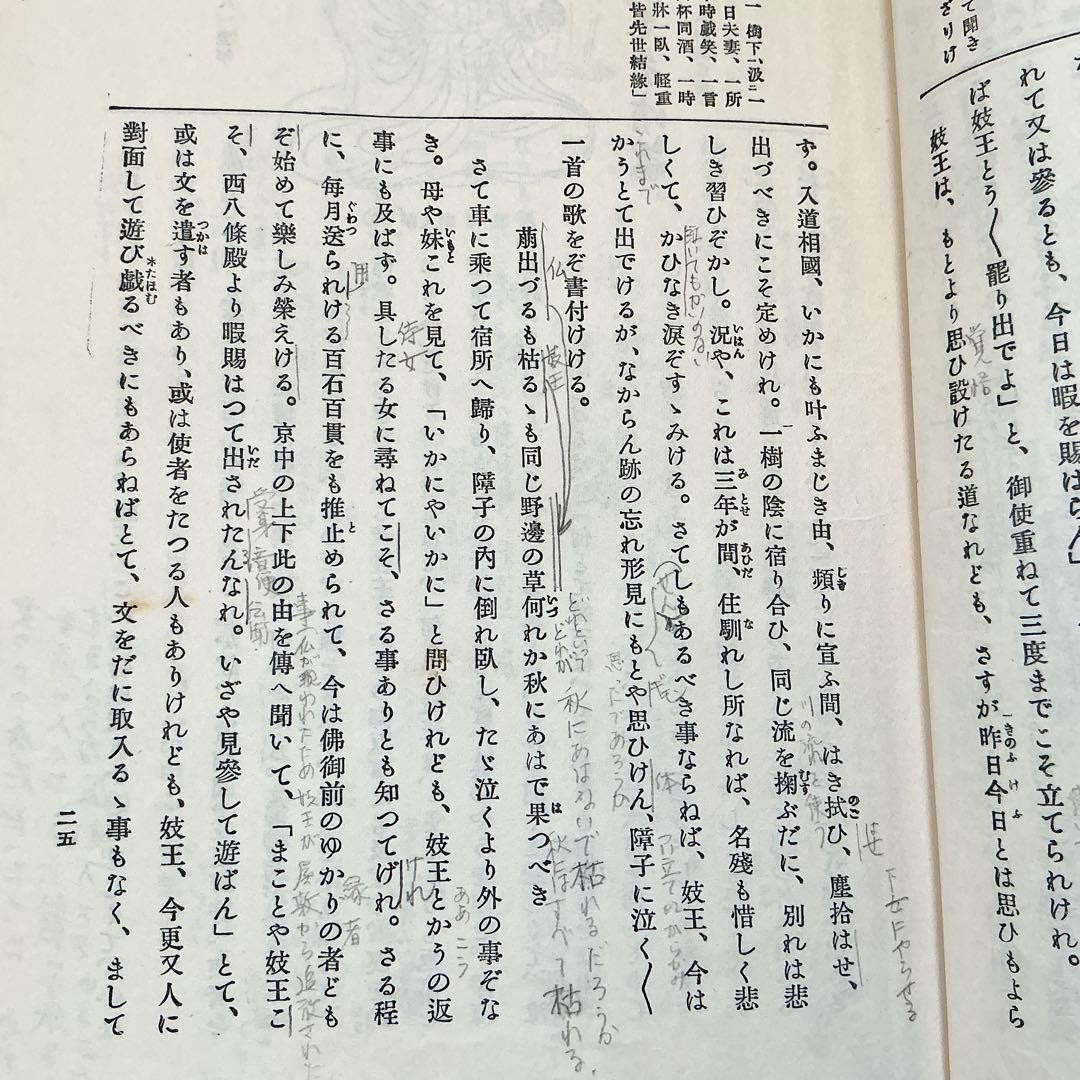 れて又は參るとも、今日は暇を賜はらん」
ば妓王とう〳〵罷り出でよ」と、御使重ねて三度までこそ立てられけれ。
妓王は、もとより思ひ設けたる道なれども、さすが昨日今日とは思ひもよら
覚悟
て聞き
ざりけ
一樹下、汲二一
日夫妻、一所
時戯笑、一言
杯同酒、一時
牀一臥、軽重
皆先世結縁」
ず。入道相國、いかにも叶ふまじき由、頻りに宣ふ間、はき拭ひ、塵拾はせ、
下女にやらせる
出づべきにこそ定めけれ。一樹の陰に宿り合ひ、同じ流を掬ぶだに、別れは悲
川の流れと使う
しき習ひぞかし。況や、これは三年が間、住馴れし所なれば、名殘も惜しく悲
しくて、かひなき涙ぞすゝみける。さてしもあるべき事ならねば、妓王、今は
かうとて出でけるが、なからん跡の忘れ形見にもとや思ひけん、障子に泣く〳〵
これまで
思ったであろうか
一首の歌をぞ書付けける。
萠出づるも枯るゝも同じ野邊の草何れか秋にあはで果つべき
仏
妓王
秋にあはないで枯れるだろうか
秋にはすべて枯れる
さて車に乘つて宿所へ歸り、障子の內に倒れ臥し、たゞ泣くより外の事ぞな
き。母や妹これを見て、「いかにやいかに」と問ひけれども、妓王とかうの返
ああこう
事にも及ばず。具したる女に尋ねてこそ、さる事ありとも知つてげれ。さる程
侍女
けれ
に、每月送られける百石百貫をも推止められて、今は佛御前のゆかりの者ども
縁者
ぞ始めて樂しみ榮えける。京中の上下此の由を傳へ聞いて、「まことや妓王こ
事 仏が現われたため妓王が屋敷から追放された
そ、西八條殿より暇賜はつて出されたんなれ。いざや見參して遊ばん」とて、
或は文を遣す者もあり、或は使者をたつる人もありけれども、妓王、今更又人に
對面して遊び戲るべきにもあらねばとて、文をだに取入るゝ事もなく、まして
二五